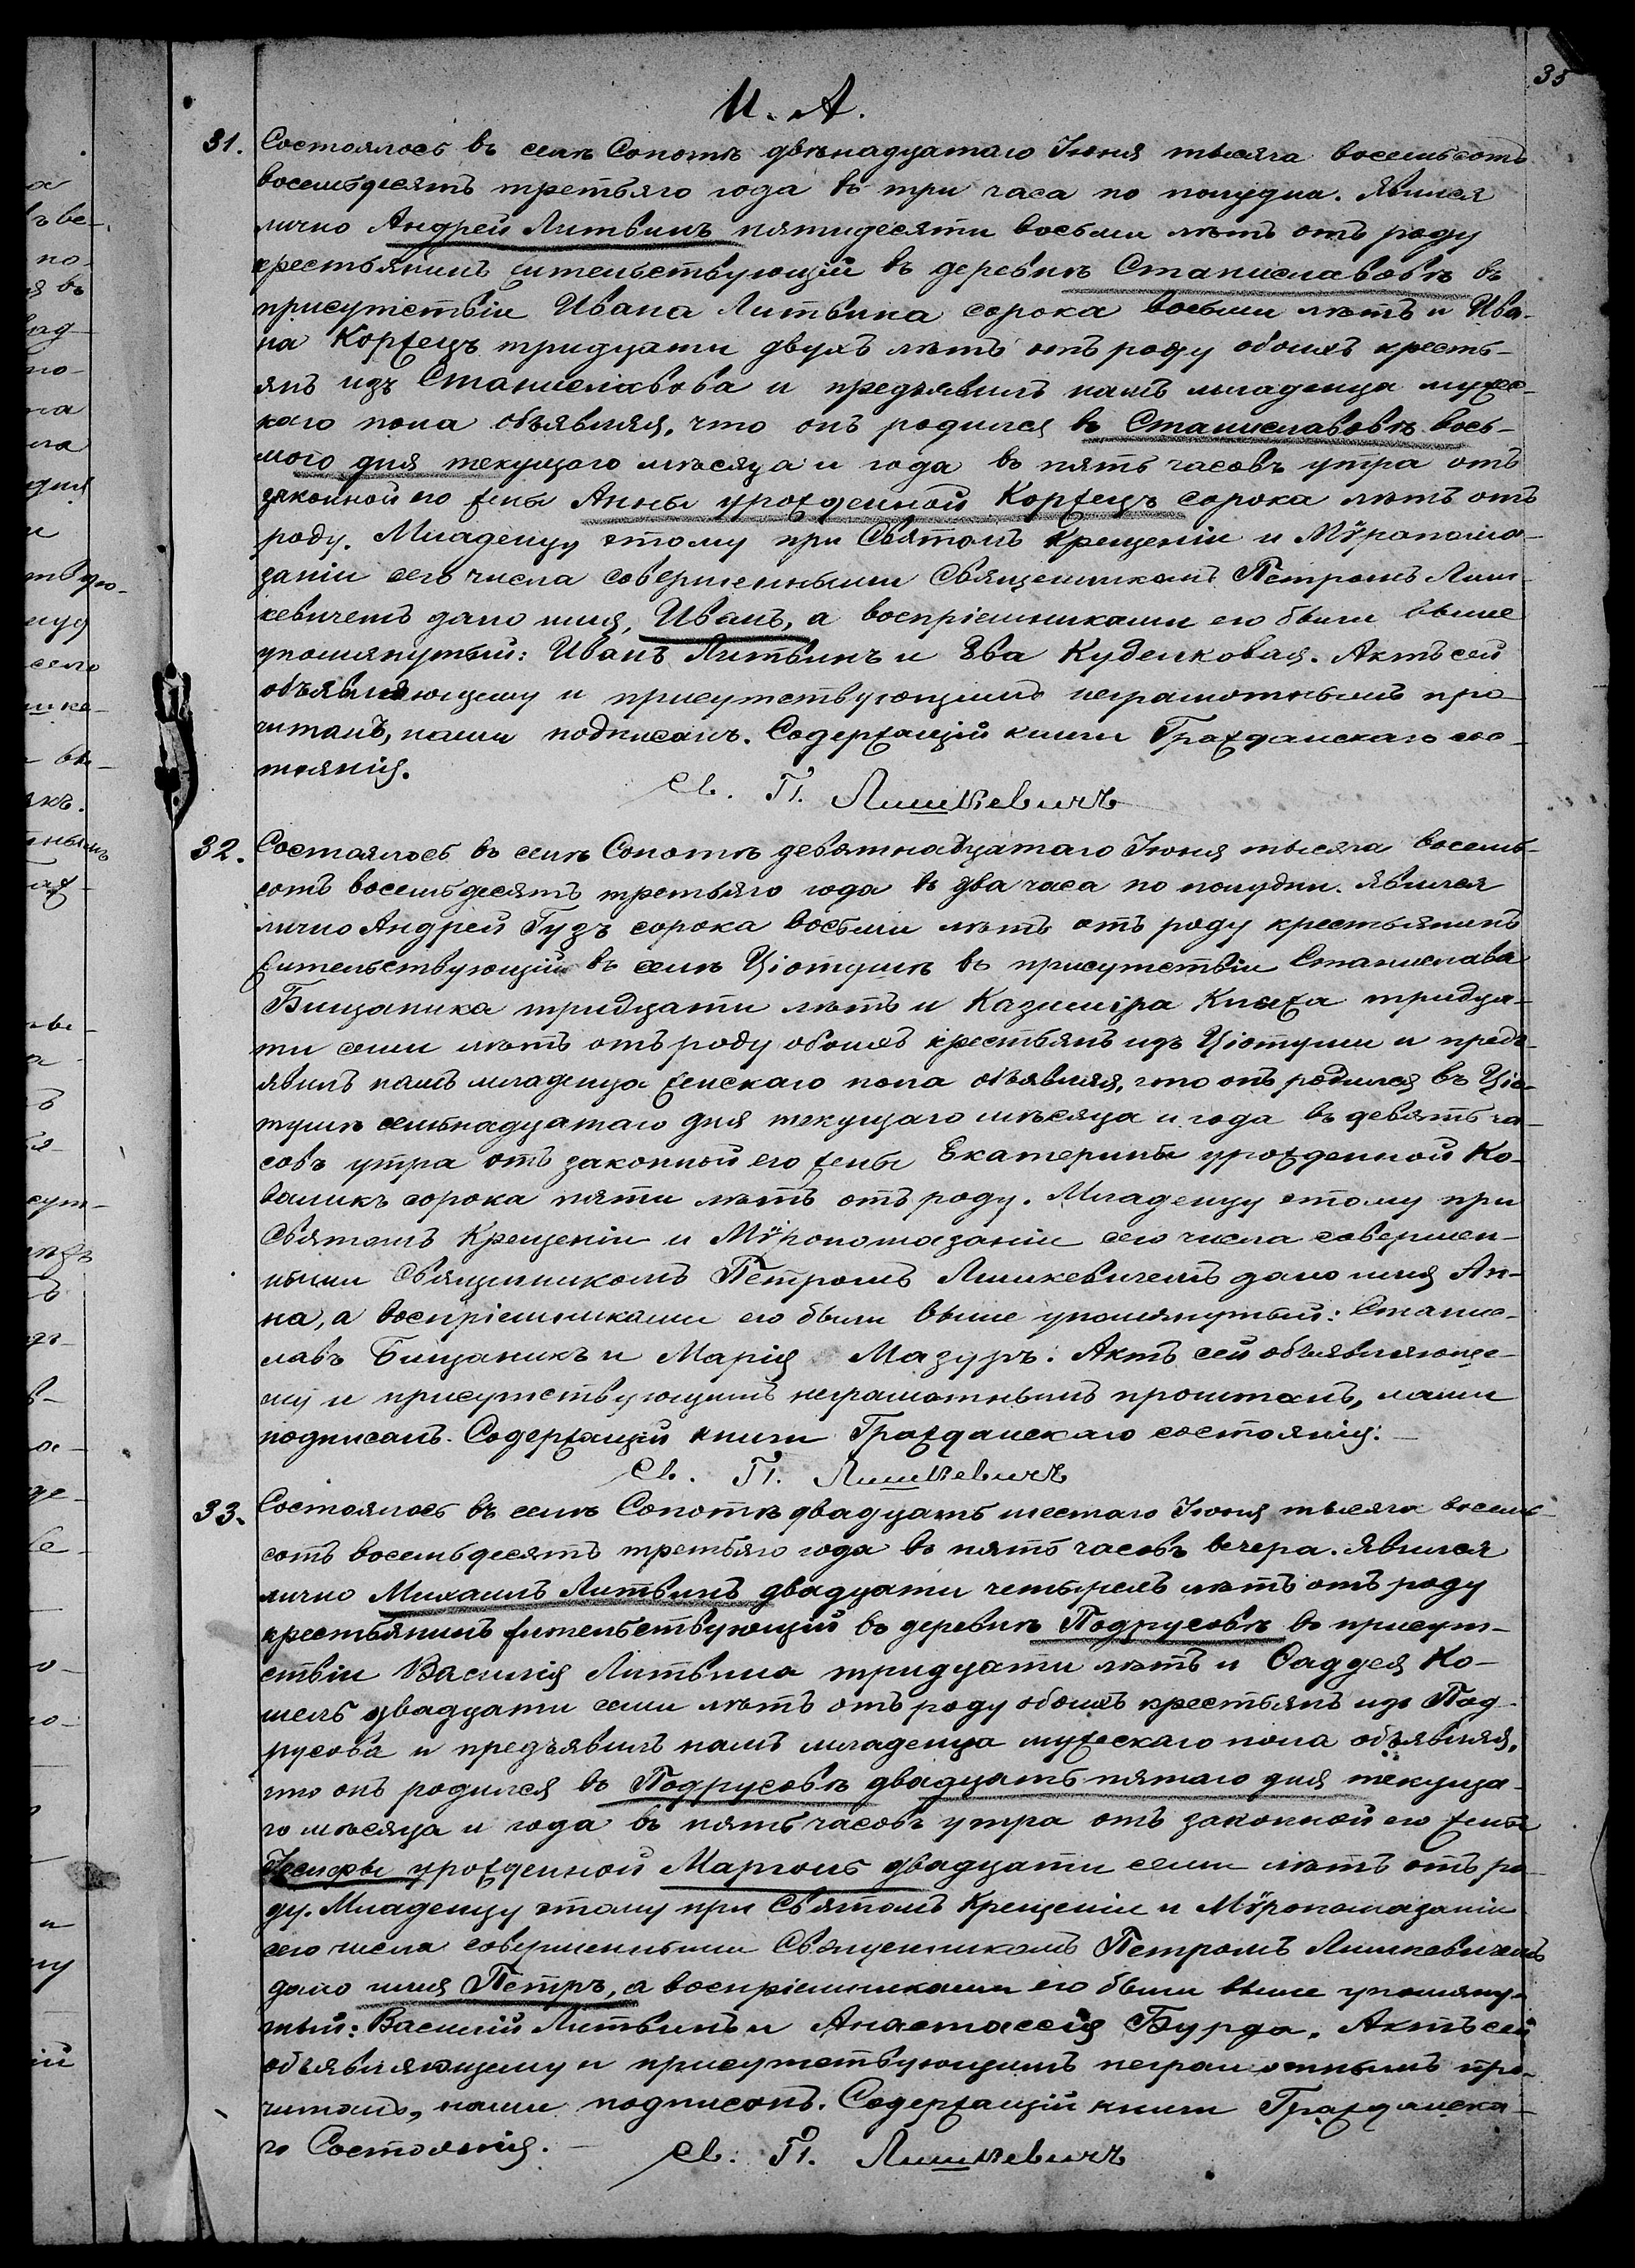 35
И. А.
31. Состоялось въ селѣ Сопотѣ двѣнадцатаго Іюня тысяча восемьсотъ
восемьдесятъ третьяго года въ три часа по полудна. Явился
лично Андрей Литвинъ пятидесяти восьми лѣтъ отъ роду
крестьянинъ жительствующій въ деревнѣ Станиславовѣ въ
присутствіи Ивана Литвина сорока восьми лѣтъ и Ива-
на Коржецъ тридцати двухъ лѣтъ отъ роду обоихъ кресть-
янъ изъ Станиславова и предъявилъ намъ младенца мужес-
каго пола объявляя, что онъ родился въ Станиславовѣ вось-
мого дня текущаго мѣсяца и года въ пять часовъ утра отъ
законной его жены Анны урожденной Коржецъ сорока лѣтъ отъ
роду. Младенцу этому при Святомъ Крещеніи и Мѵропома-
заніи сего числа совершенными Священникомъ Петромъ Лиш-
кевичемъ дано имя, Иванъ, а воспріемниками его были выше
упомянутый: Иванъ Литвинъ и Эва Куделковая. Актъ сей
объявляющему и присутствующимъ неграмотнымъ про-
читанъ, нами подписанъ. Содержащій книги Гражданскаго сос-
тоянія.
Св. П. Лишкевичъ
32. Состоялось въ селѣ Сопотѣ девятнадцатаго Іюня тысяча восемь-
сотъ восемьдесятъ третьяго года въ два часа по полудни. Явился
лично Андрей Гузъ сорока восьми лѣтъ отъ роду крестьянинъ
жительствующій въ селѣ Ціотушѣ въ присутствіи Станислава
Бищаника тридцати лѣтъ и Казиміра Кныжа тридца-
ти семи лѣтъ отъ роду обоихъ крестьянъ изъ Ціотуши и предъ-
явилъ намъ младенца женскаго пола объявляя, что онъ родился въ Ціо-
тушѣ семьнадцатаго дня текущаго мѣсяца и года въ девять ча-
совъ утра отъ законной его жены Екатерины урожденной Ко-
валикъ сорока пяти лѣтъ отъ роду. Младенцу этому при
Святомъ Крещеніи и Мѵропомазаніи сего числа совершен-
ными Священникомъ Петромъ Лишкевичемъ дано имя Ан-
на, а воспріемниками его были выше упомянутый: Станис-
лавъ Бищаникъ и Марія Мазуръ. Актъ сей объявляюще-
му и присутствующимъ неграмотнымъ прочитанъ, нами
подписанъ. Содержащій книги Гражданскаго состоянія.
Св. П. Лишкевичъ
33. Состоялось въ селѣ Сопотѣ двадцать шестаго Іюня тысяча восемь-
сотъ восемьдесятъ третьяго года въ пять часовъ вечера. Явился
лично Михаилъ Литвинъ двадцати четырехъ лѣтъ отъ роду
крестьянинъ жительствующій въ деревнѣ Подрусовѣ въ присут-
ствіи Василія Литвина тридцати лѣтъ и Фаддея Ко-
шель двадцати семи лѣтъ отъ роду обоихъ крестьянъ изъ Под-
русова и предъявилъ намъ младенца мужескаго пола объявляя,
что онъ родился въ Подрусовѣ двадцать пятаго дня текуща-
го мѣсяца и года въ пять часовъ утра отъ законной его жены
Іосифы урожденной Марголь двадцати семи лѣтъ отъ ро-
ду. Младенцу этому при Святомъ Крещеніи и Мѵропомазаніи
сего числа совершенными Священникомъ Петромъ Лишкевичемъ
дано имя Петръ, а воспріемниками его были выше упомяну-
тый: Василій Литвинъ и Анастассія Бурда. Актъ сей
объявляющему и присутствующимъ неграмотнымъ про-
читанъ, нами подписанъ. Содержащій книги Гражданска-
го Состоянія.
Св. П. Лишкевичъ